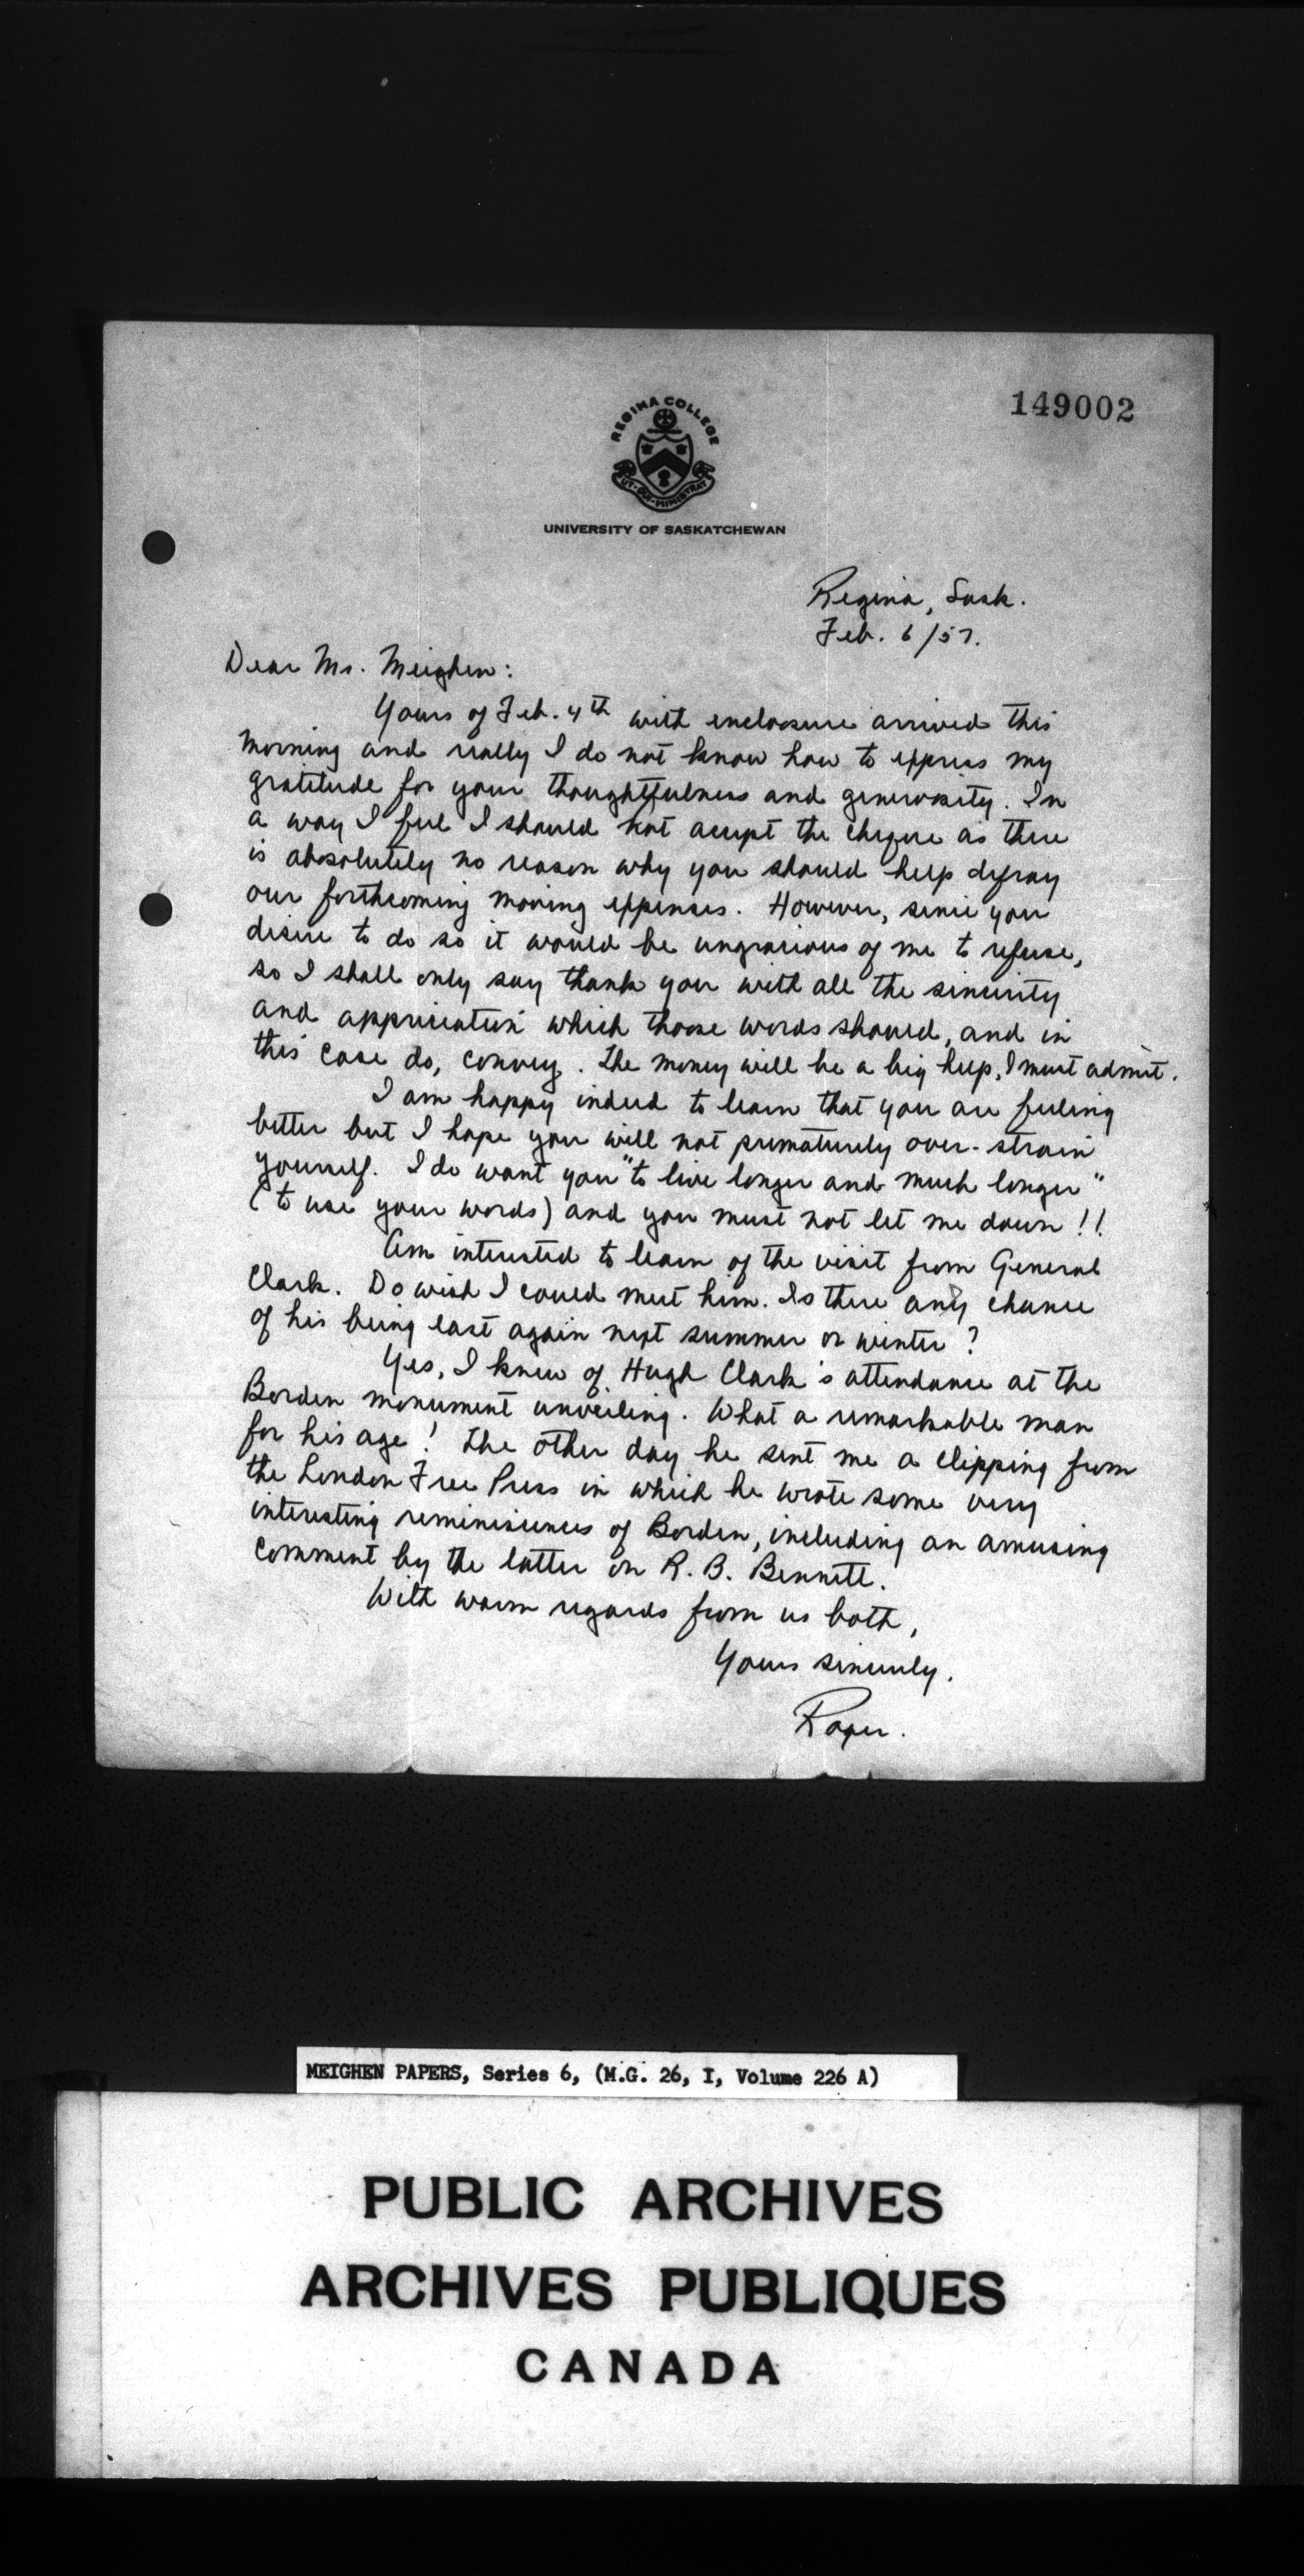 149002
REGINA COLLEGE
UT·QUI·MINISTRAT
UNIVERSITY OF SASKATCHEWAN
Regina, Sask.
Feb. 6/57.
Dear Mr. Meighen:
Yours of Feb. 4th with enclosure arrived this
morning and really I do not know how to express my
gratitude for your thoughtfulness and generosity. In
a way I feel I should not accept the cheque as there
is absolutely no reason why you should help defray
our forthcoming moving expenses. However, since you
desire to do so it would be ungracious of me to refuse,
so I shall only say thank you with all the sincerity
and appreciation which those words should, and in
this case do, convey. The money will be a big help, I must admit.
I am happy indeed to learn that you are feeling
better but I hope you will not prematurely over-strain
yourself. I do want you "to live longer and much longer"
(to use your words) and you must not let me down!!
Am interested to learn of the visit from General
Clark. Do wish I could meet him. Is there any chance
of his being east again next summer or winter?
Yes, I knew of Hugh Clark's attendance at the
Borden monument unveiling. What a remarkable man
for his age! The other day he sent me a clipping from
the London Free Press in which he wrote some very
interesting reminiscences of Borden, including an amusing
comment by the latter on R. B. Bennett.
With warm regards from us both,
Yours sincerely,
Roger.
MEIGHEN PAPERS, Series 6, (M.G. 26, I, Volume 226 A)
PUBLIC ARCHIVES
ARCHIVES PUBLIQUES
CANADA